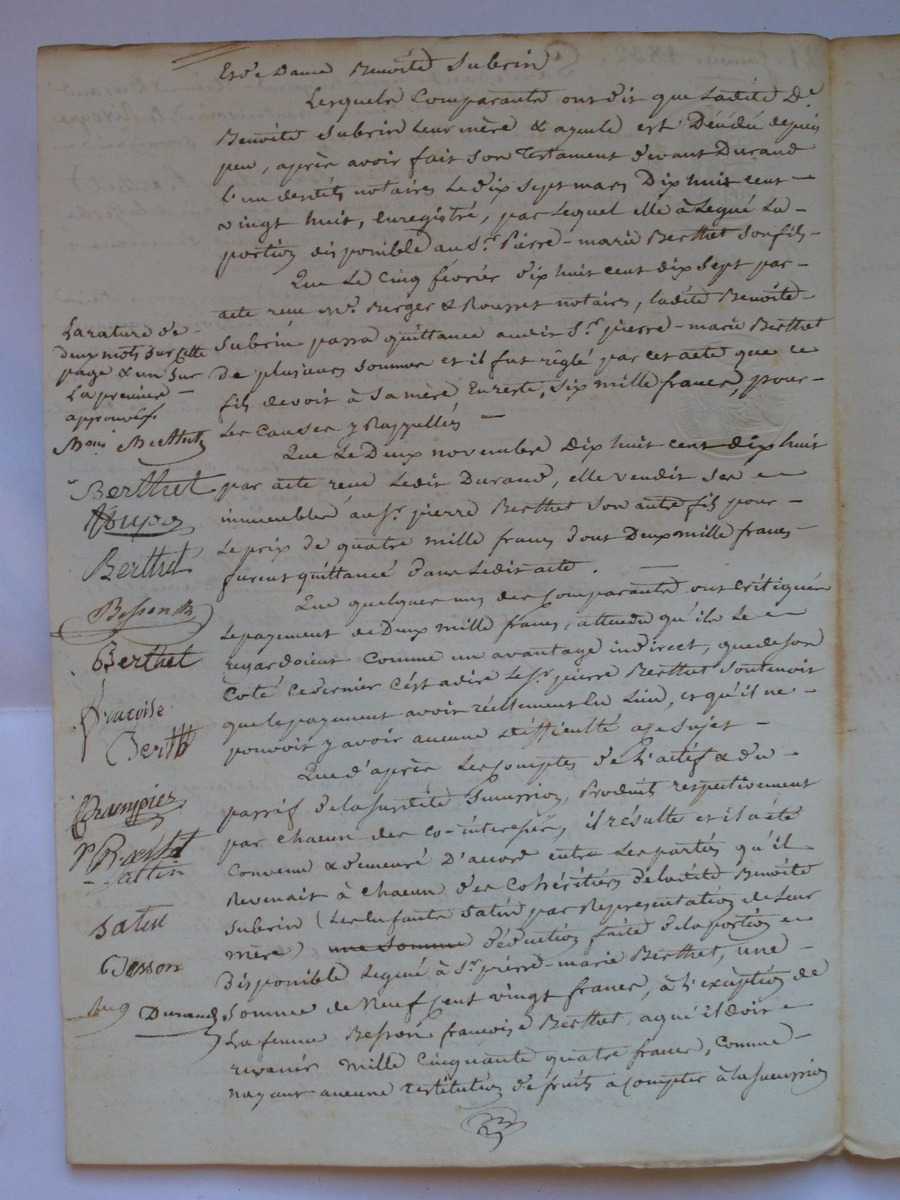 Et de Dame Benoîte Subrin
Lesquels Comparants ont dit que Ladite De.
Benoîte Subrin Leur mère & ayeule est Décédée depuis
peu, après avoir fait Son Testament devant Durand
l'un desdits notaires Le dix Sept mars Dix huit cent
vingt huit, enregistré, par Lequel elle a Légué La
portion disponible au Sr. Pierre-marie Berthet Son fils
Que Le Cinq février dix huit cent dix Sept par
acte reçu Me. Berger & Rousset notaires, ladite Benoîte
Subrin passa quittance audit Sr. pierre-marie Berthet
De plusieurs Sommes et il fut règlé par cet acte que ce
fils devoit à Sa mère En reste, Six mille francs, pour
Les Causes y Rappellées
Que Le Deux novembre Dix huit cent dix huit
par acte reçu Ledit Durand, elle vendit Ses
immeubles au Sr. pierre Berthet Son autre fils pour
Le prix de quatre mille francs dont Deux mille francs
furent quittancé dans Ledit acte.
Que quelques uns des Comparants ont Critiqué
Le payement de Deux mille francs, attendu qu'ils Le
regardoient Comme un avantage indirect, que de Son
Coté Ce dernier C'est adire Le Sr. pierre Berthet Soutenoit
que le payement avoit réellement Eu Lieu, et qu'il ne
pouvoit y avoir aucune difficulté à ce Sujet
Que d'après Les Comptes de l'actif & du
passif de la Susdite Succession, Produits respectivement
par chacun des Co-interessés, il résulte et il a été
Convenu & demeuré D'accord entre Les parties qu'il
Revenait à Chacun des Cohéritiers de Ladite Benoîte
Subrin (Les Enfants Satin par Représentation de Leur
mère) une Somme déduction faite de la portion
Disponible Legué à Sr. pierre-marie Berthet, une
Somme de Neuf Cent vingt francs, à l'exception de
La femme Besson françoise Berthet, a qui il doit
revenir mille Cinquante quatre francs, Comme
nayant aucune restitution de fruits a Compter à la Succession
La rature de
deux mots Sur Cette
page & un Sur
La première
approuvés
Berthet
Berthet
Berthet
Besson
Berthet
françoise
Berth
Crampier
Satin
Satin
Besson
Durand